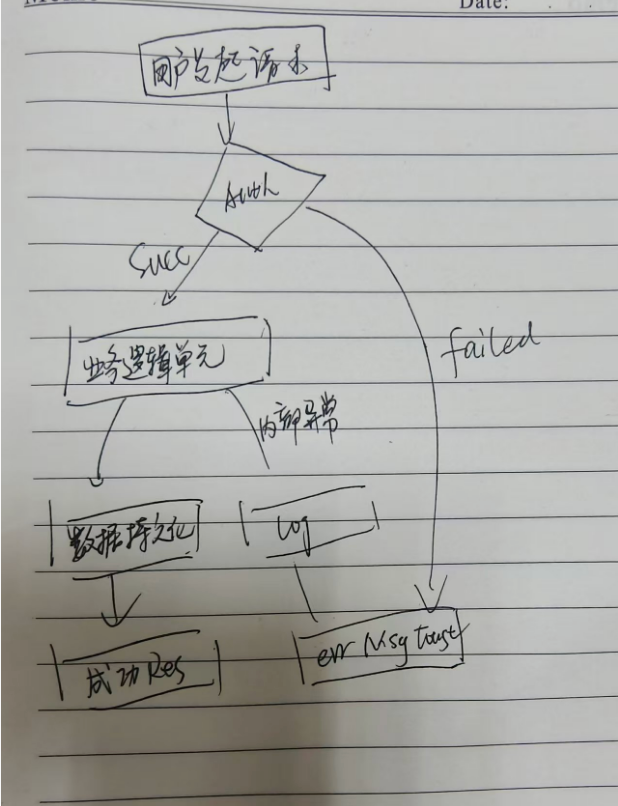 Date:
用户发起请求
Auth
Succ
failed
业务逻辑单元
内部异常
数据持久化
Log
成功Res
err Msg Toast